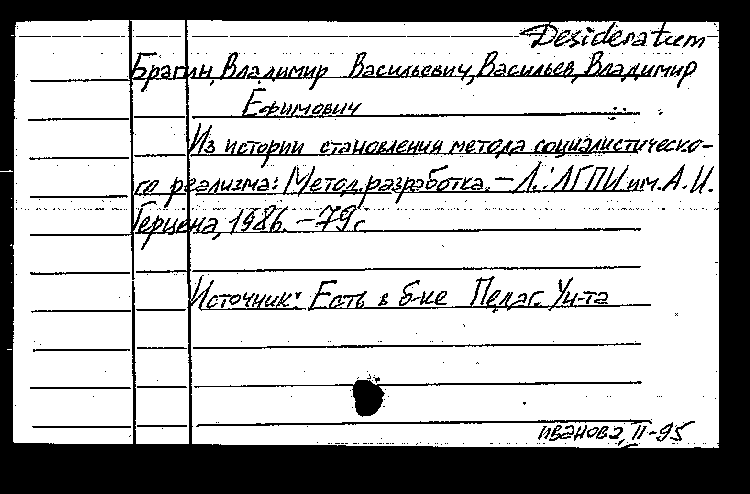 Desideratum
Брагин, Владимир Васильевич, Васильев, Владимир
Ефимович
Из истории становления метода социалистическо-
го реализма: Метод. разработка. – Л.: ЛГПИ им. А. И.
Герцена, 1986. – 79 с.
Источник: Есть в б-ке Педаг. Ун-та
иванова, II-95